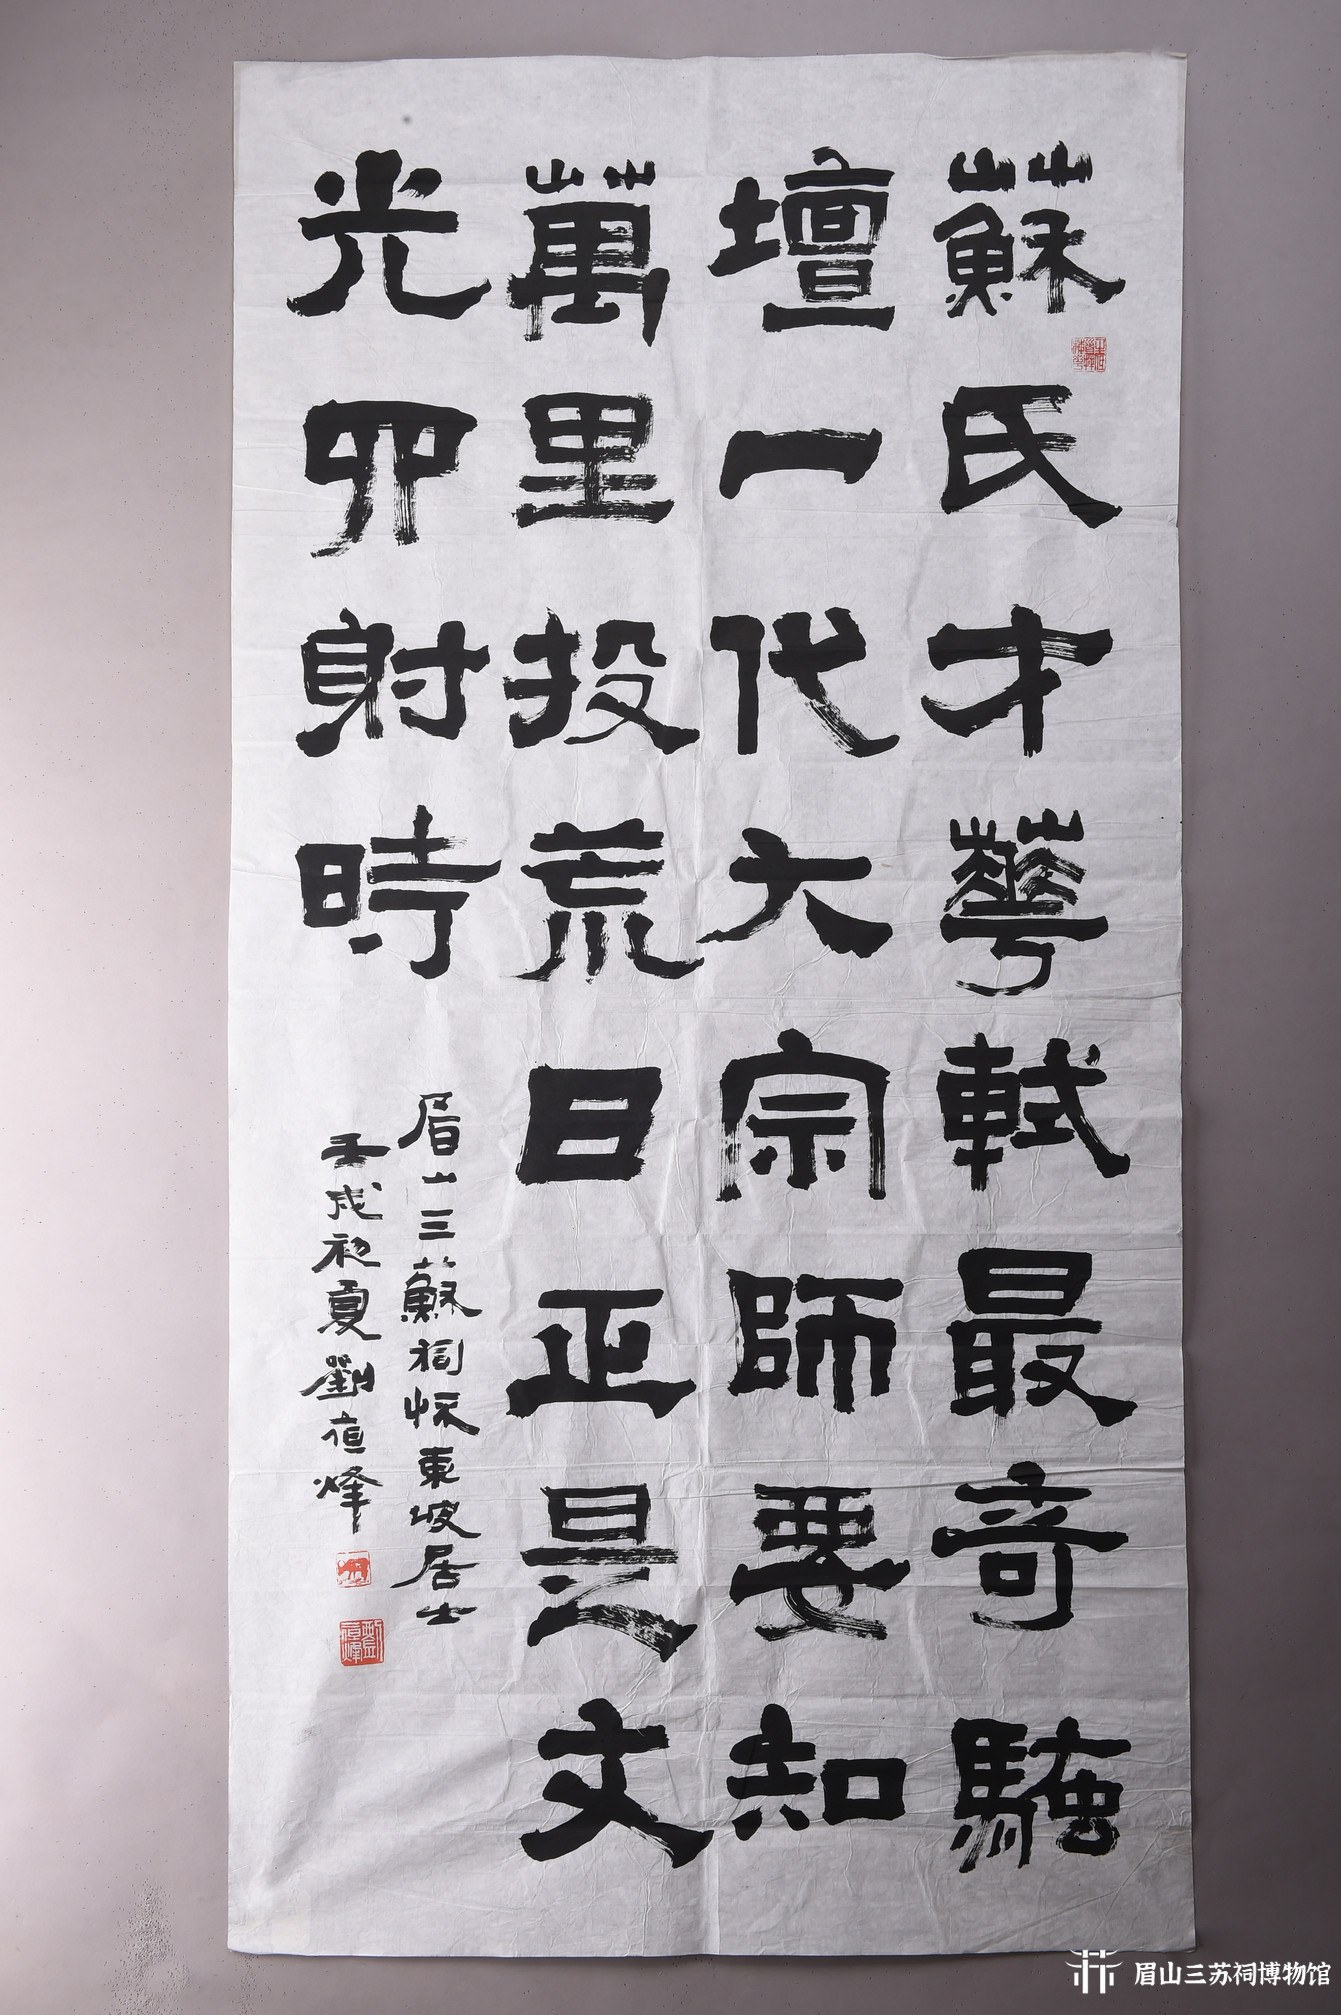 蘇氏才華軾最奇馳
壇一代大宗師要知
萬里投荒日正是文
光四射時
眉山三蘇祠懷東坡居士
壬戌初夏劉奇烽
眉山三苏祠博物馆